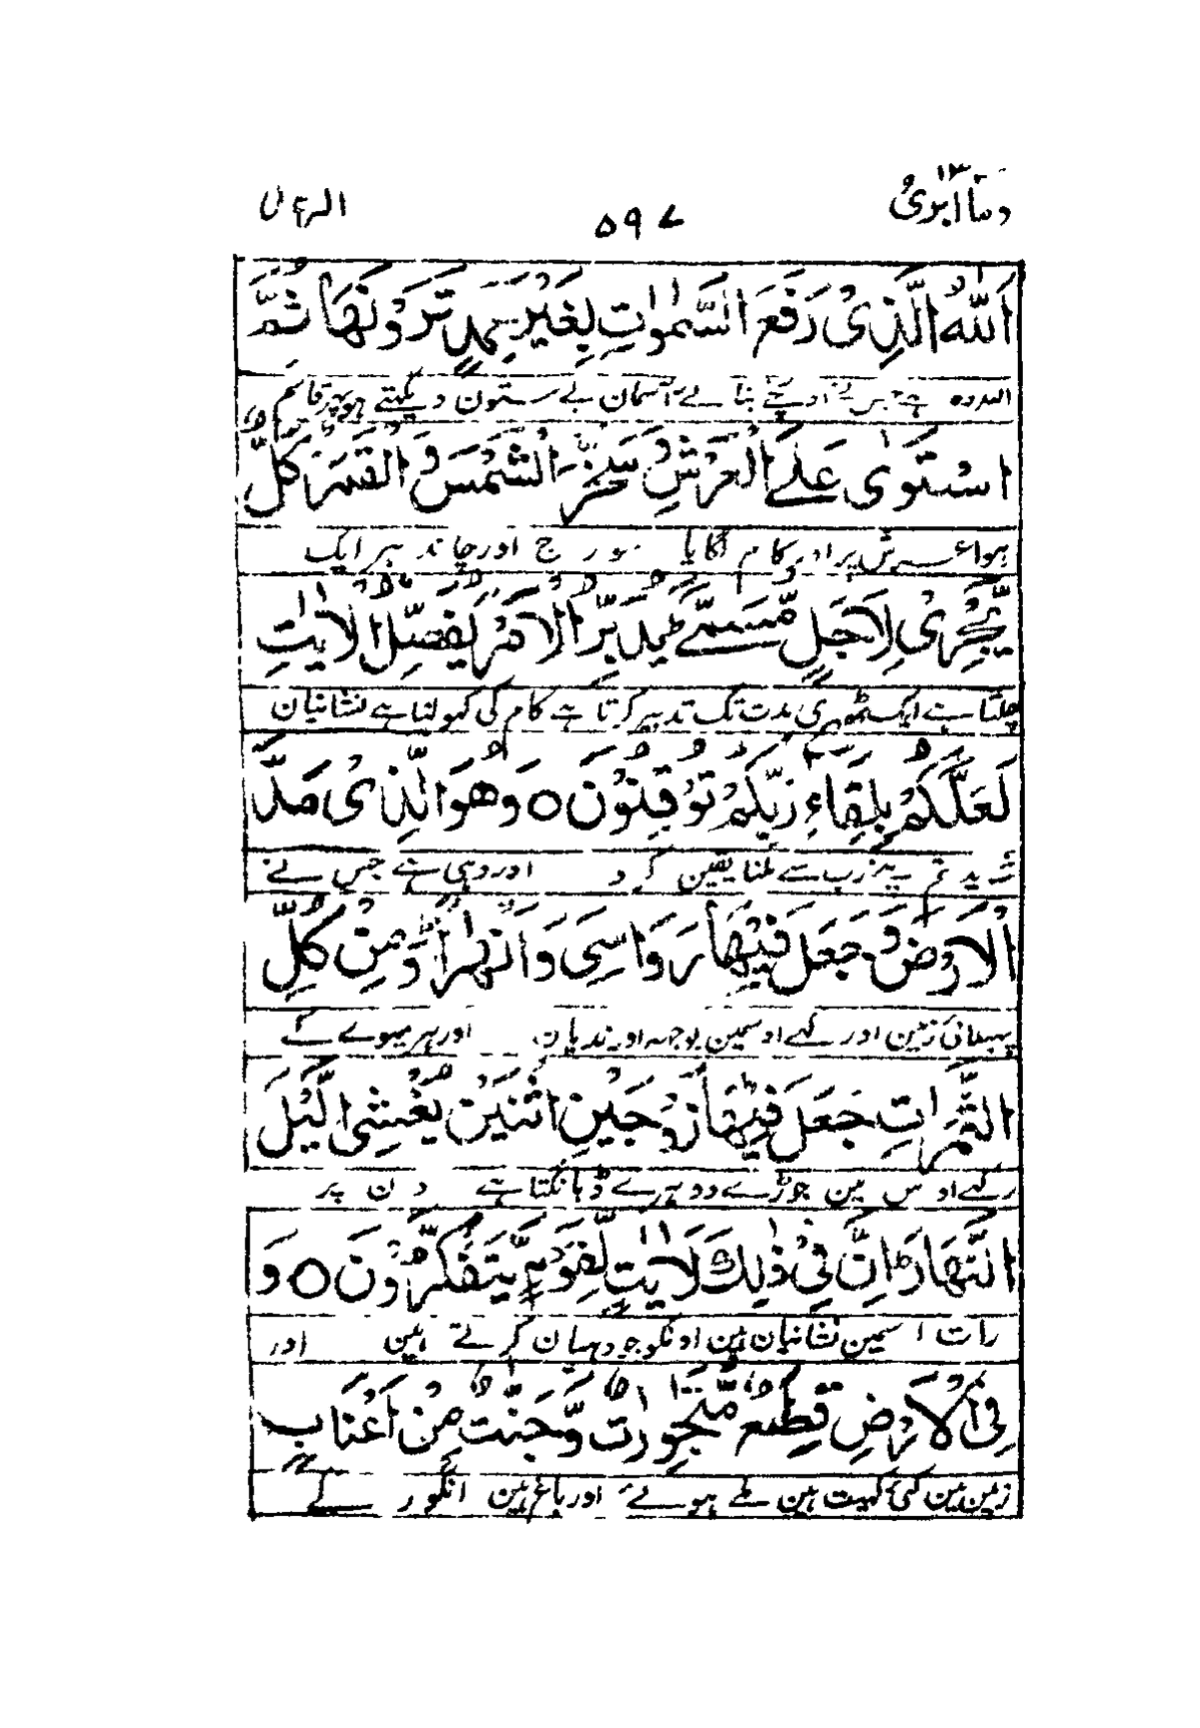 وما ابرئ ۱۳
۵۹۷
الرعد
اَللّٰهُ الَّذِىْ رَفَعَ السَّمٰوٰتِ بِغَيْرِ عَمَدٍ تَرَوْنَهَا ثُمَّ
اللہ وہ ہے جس نے اونچے بنائے آسمان بے ستون دیکھتے ہو پھر قائم
اسْتَوٰى عَلَے الْعَرْشِ وَ سَخَّرَ الشَّمْسَ وَ الْقَمَرَ كُلٌّ
ہوا عرش پر اور کام لگایا سورج اور چاند ہر ایک
يَّجْرِىْ لِاَجَلٍ مُّسَمًّے يُدَبِّرُ الْاَمْرَ يُفَصِّلُ الْاٰيٰتِ
چلتا ہے ایک ٹھہری مدت تک تدبیر کرتا ہے کام کی کہولتا ہے نشانیان
لَعَلَّكُمْ بِلِقَآءِ رَبِّكُمْ تُوْقِنُوْنَ ○ وَهُوَ الَّذِىْ مَدَّ
شاید تم اپنے رب سے ملنا یقین کرو اور وہی ہے جس نے
الْاَرْضَ وَ جَعَلَ فِيْهَا رَوَاسِىَ وَ اَنْهٰرًا وَمِنْ كُلِّ
پھیلائی زمین اور رکہے اوسمین بوجہہ اور ندیان اور ہر میوے کے
الثَّمَرٰتِ جَعَلَ فِيْهَا زَوْجَيْنِ اثْنَيْنِ يُغْشِى الَّيْلَ
رکہے اوس مین جوڑے دوہرے ڈہانکتا ہے دن پر
النَّهَارَ اِنَّ فِىْ ذٰلِكَ لَاٰيٰتٍ لِّقَوْمٍ يَّتَفَكَّرُوْنَ ○ وَ
رات اسمین نشانیان ہین اونکو جو دہیان کرتے ہین اور
فِى الْاَرْضِ قِطَعٌ مُّتَجٰوِرٰتٌ وَّجَنّٰتٌ مِّنْ اَعْنَابٍ
زمین مین کئی کہیت ہین ملے ہوئے اور باغ ہین انگور کے